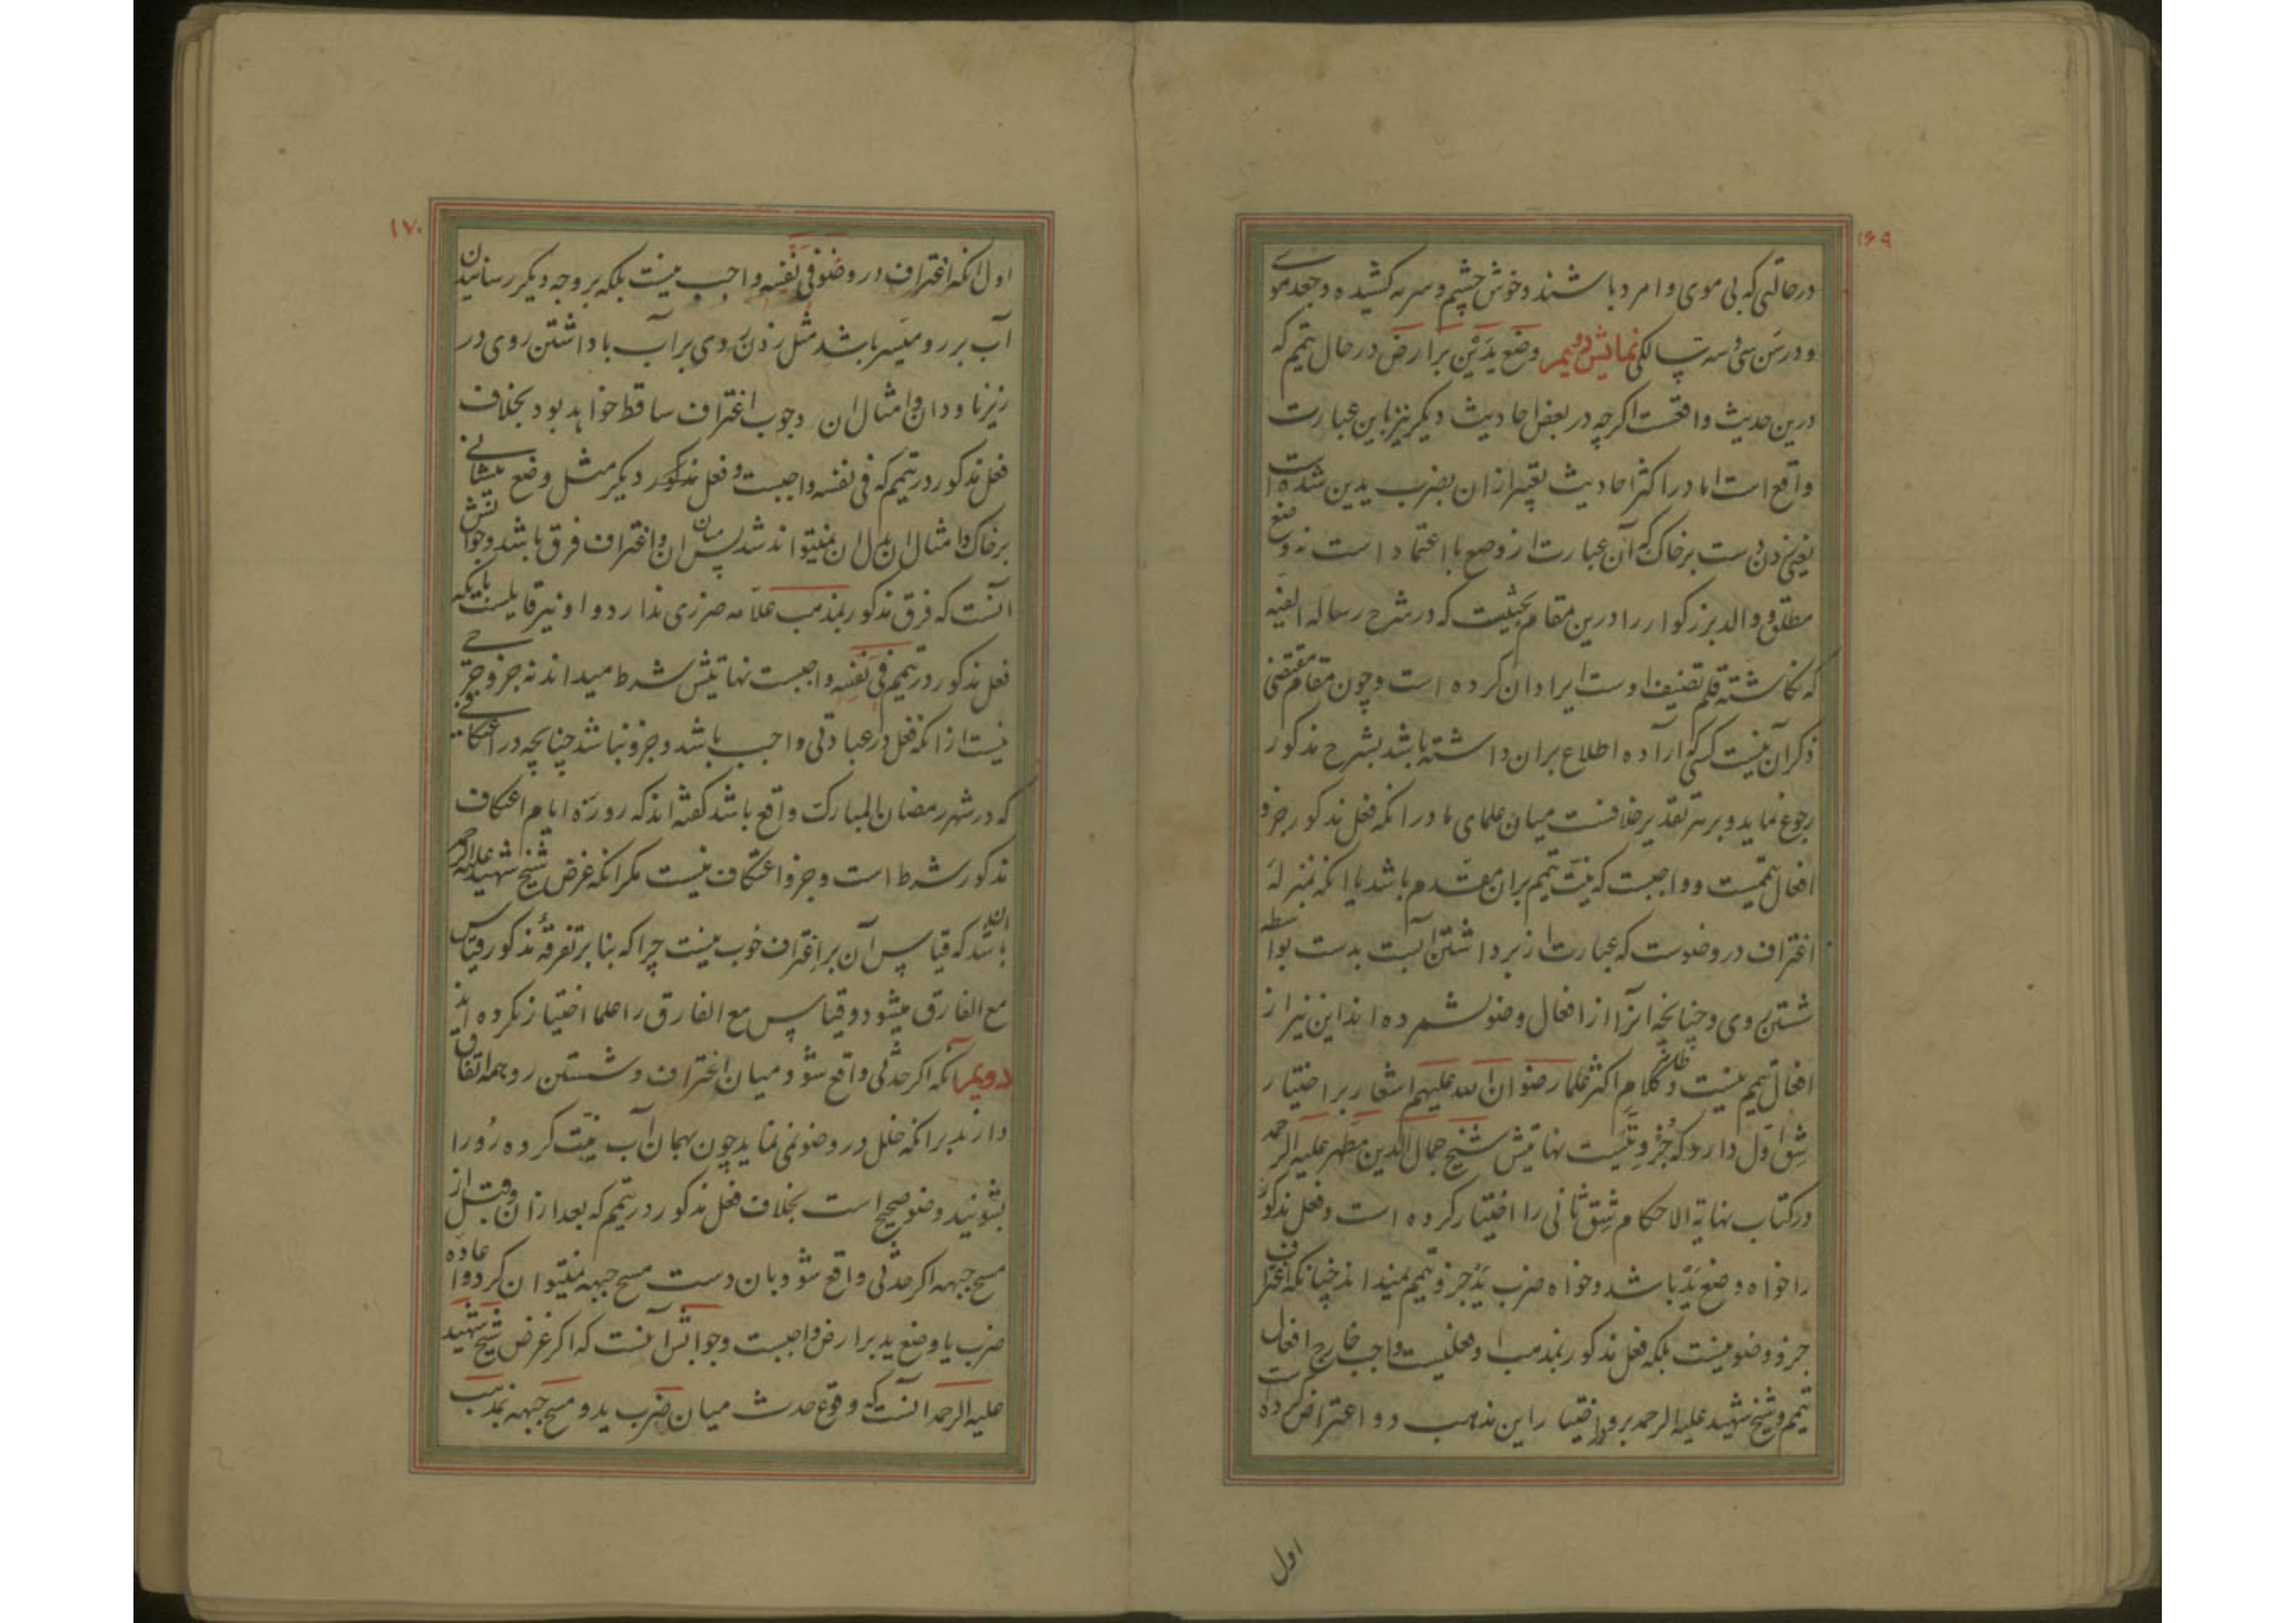 ۱۶۹
درحالتی که بی موی و امرد باشند و خوش چشم و سرمه کشیده و جعد موی
و در سن سی و سه سالگی نمایش دویم وضع یدین بر ارض در حال تیمم که
درین حدیث واقعست اگرچه در بعض احادیث دیگر نیز باین عبارت
واقع است اما در اکثر احادیث تعبیر ازان بضرب یدین شده است
یعنی زدن دست بر خاک که آن عبارت از وضع با اعتماد است نه وضع
مطلق و والد بزرگوار را درین مقام بحثیست که در شرح رساله الفیه
که نگاشته قلم تصنیف اوست ایراد ان کرده است و چون مقام مقتضی
ذکر آن نیست کسی که اراده اطلاع بران داشته باشد بشرح مذکور
رجوع نماید و بر هر تقدیر خلافست میان علمای ما در انکه فعل مذکور جزو
افعال تیممست و واجبست که نیت تیمم بران مقدم باشد یا انکه بمنزله
اغتراف در وضوست که عبارت از برداشتن آبست بدست بواسطه
شستن روی و چنانچه انرا از افعال وضو نشمرده اند این نیز از
افعال تیمم نیست و ظاهر کلام اکثر علما رضوان الله علیهم اشعار بر اختیار
شق اول دارد که جزویتست نهایتش شیخ جمال الدین مطهر علیه الرحمه
در کتاب نهایة الاحکام شق ثانی را اختیار کرده است و فعل مذکور
را خواه وضع ید باشد و خواه ضرب ید جزو تیمم نمیداند چنانکه اغتراف
جزو وضو نیست بلکه فعل مذکور بمذهب او فعلیست واجب خارج افعال
تیمم و شیخ شهید علیه الرحمه برو در اختیار این مذهب دو اعتراض کرده است
اول
۱۷۰
اول انکه اغتراف در وضو فی نفسه واجب نیست بلکه بر وجه دیگر رسانیدن
آب بر رو میسر باشد مثل زدن روی بر آب یا داشتن روی در
زیر ناودان و امثال ان وجوب اغتراف ساقط خواهد بود بخلاف
فعل مذکور در تیمم که فی نفسه واجبست و فعل مذکور دیگر مثل وضع پیشانی
بر خاک و امثال ان بدل ان نمیتواند شد پس میان ان و اغتراف فرق باشد و جوابش
انست که فرق مذکور بمذهب علامه ضرری ندارد و او نیز قایلست بانکه
فعل مذکور در تیمم فی نفسه واجبست نهایتش شرط میداند نه جزو و حرجی
نیست از انکه فعل در عبادتی واجب باشد و جزو نباشد چنانچه در اعتکافی
که در شهر رمضان المبارک واقع باشد گفته اند که روزه ایام اعتکاف
مذکور شرط است و جزو اعتکاف نیست مگر انکه غرض شیخ شهید علیه الرحمه
ان باشد که قیاس آن بر اغتراف خوب نیست چرا که بنا بر تفرقه مذکور قیاس
مع الفارق میشود و قیاس مع الفارق را علما اختیار نکرده اند
دویم آنکه اگر حدثی واقع شود میان اغتراف و شستن رو همه اتفاق
دارند بر انکه خلل در وضو نمی نماید چون بهمان آب نیت کرده رو را
بشویند وضو صحیح است بخلاف فعل مذکور در تیمم که بعد از ان و قبل از
مسح جبهه اگر حدثی واقع شود بان دست مسح جبهه نمیتوان کرد و اعاده
ضرب یا وضع ید بر ارض واجبست و جوابش آنست که اگر غرض شیخ شهید
علیه الرحمه انست که وقوع حدث میان ضرب ید و مسح جبهه بمذهب